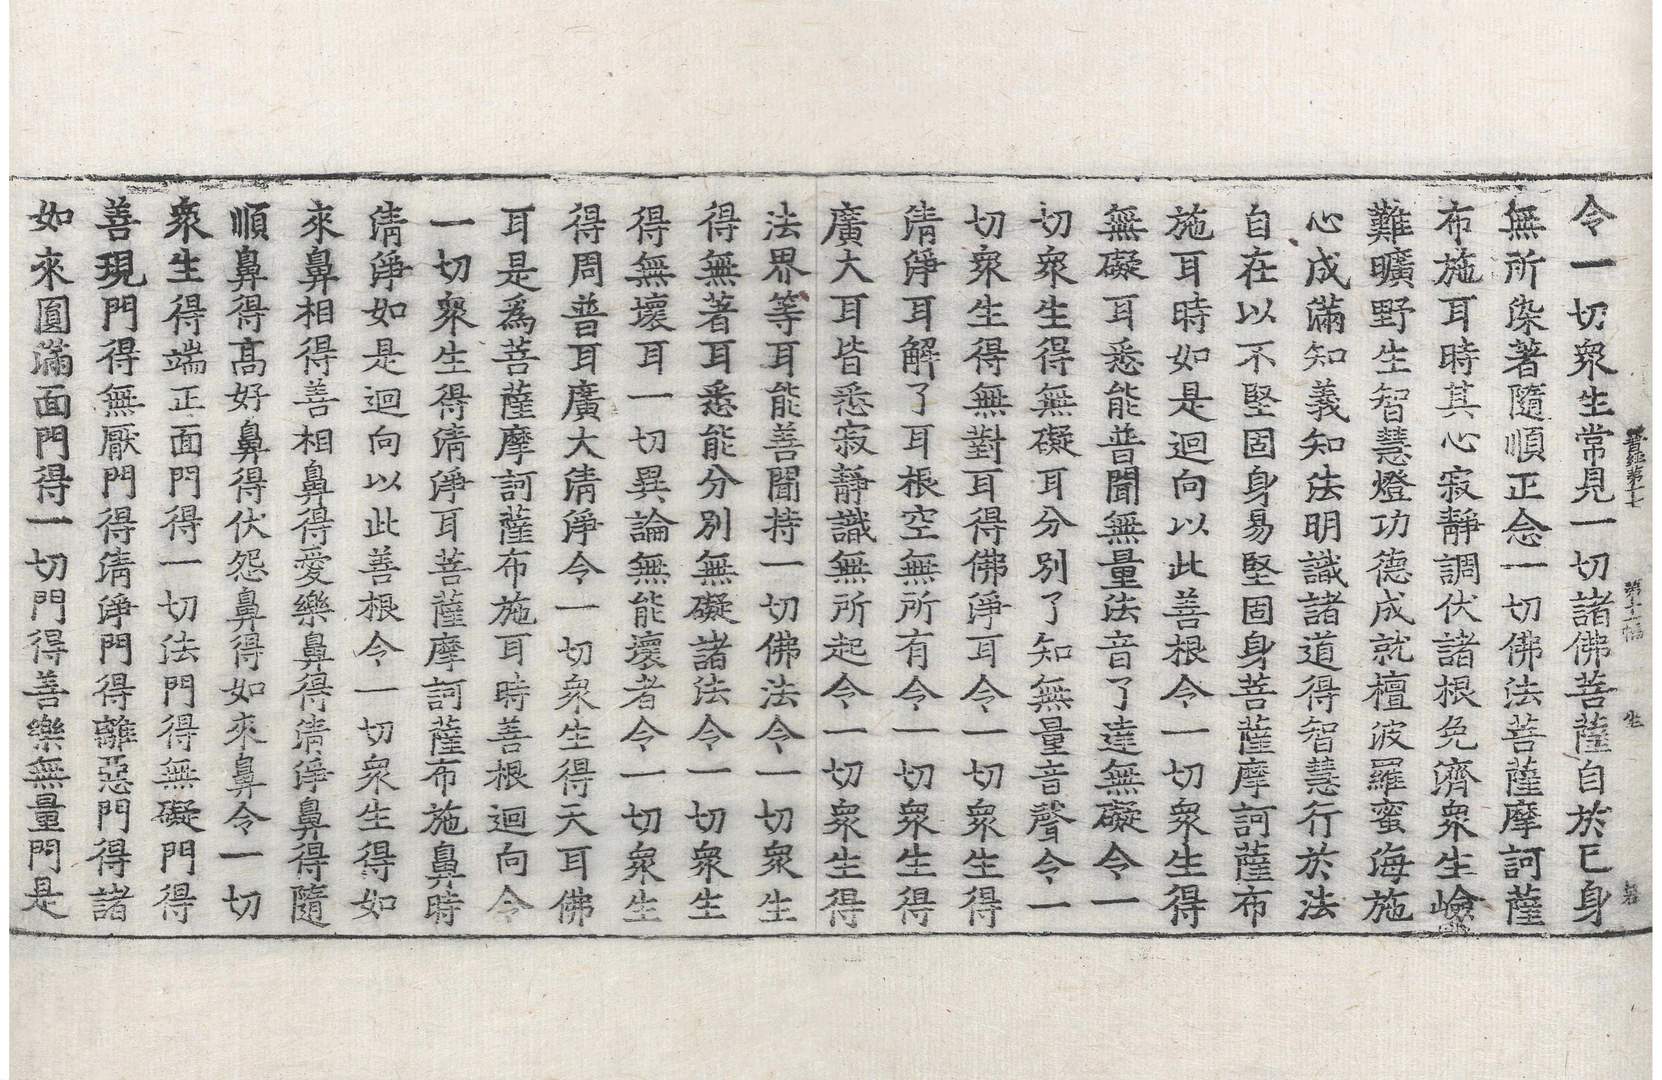 晉經第十七 第十二幅 坐
令一切衆生常見一切諸佛菩薩自於己身
無所染著隨順正念一切佛法菩薩摩訶薩
布施耳時其心寂靜調伏諸根免濟衆生嶮
難曠野生智慧燈功德成就檀波羅蜜海施
心成滿知義知法明識諸道得智慧行於法
自在以不堅固身易堅固身菩薩摩訶薩布
施耳時如是迴向以此善根令一切衆生得
無礙耳悉能普聞無量法音了達無礙令一
切衆生得無礙耳分別了知無量音聲令一
切衆生得無對耳得佛淨耳令一切衆生得
清淨耳解了耳根空無所有令一切衆生得
廣大耳皆悉寂靜識無所起令一切衆生得
法界等耳能善聞持一切佛法令一切衆生
得無著耳悉能分別無礙諸法令一切衆生
得無壞耳一切異論無能壞者令一切衆生
得周普耳廣大清淨令一切衆生得天耳佛
耳是爲菩薩摩訶薩布施耳時善根迴向令
一切衆生得清淨耳菩薩摩訶薩布施鼻時
清淨如是迴向以此善根令一切衆生得如
來鼻相得善相鼻得愛樂鼻得清淨鼻得隨
順鼻得高好鼻得伏怨鼻得如來鼻令一切
衆生得端正面門得一切法門得無礙門得
善現門得無厭門得清淨門得離惡門得諸
如來圓滿面門得一切門得善樂無量門是